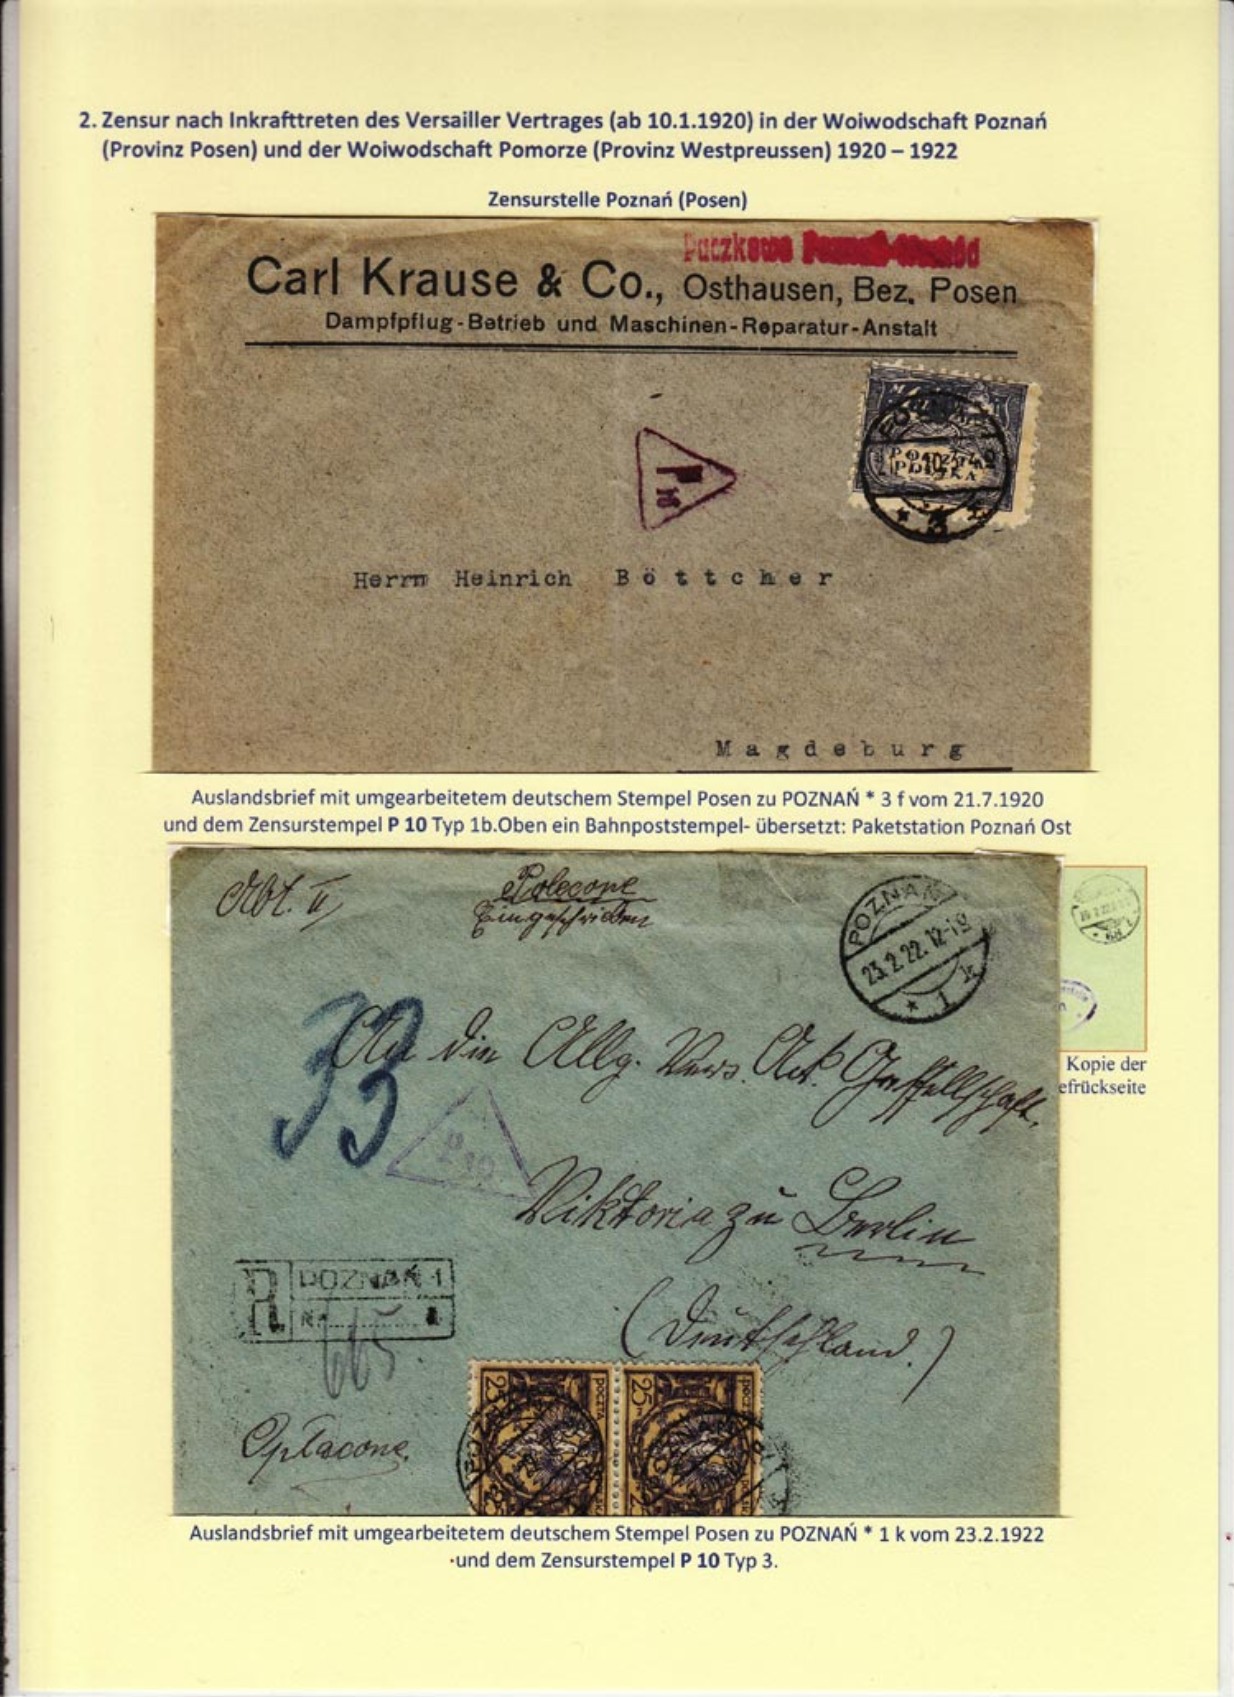 2. Zensur nach Inkrafttreten des Versailler Vertrages (ab 10.1.1920) in der Woiwodschaft Poznań
(Provinz Posen) und der Woiwodschaft Pomorze (Provinz Westpreussen) 1920 – 1922
Zensurstelle Poznań (Posen)
Paczkowo Poznań-Wschód
Carl Krause & Co., Osthausen, Bez. Posen
Dampfpflug-Betrieb und Maschinen-Reparatur-Anstalt
P 10
Herrn Heinrich Böttcher
Magdeburg
Auslandsbrief mit umgearbeitetem deutschem Stempel Posen zu POZNAŃ * 3 f vom 21.7.1920
und dem Zensurstempel P 10 Typ 1b.Oben ein Bahnpoststempel- übersetzt: Paketstation Poznań Ost
Abt. II
Polecone
Eingeschrieben
POZNAŃ
23.2.22. 12-1
* 1 k
33
An die Allg. Vers. Akt. Gesellschaft
P 10
Viktoria zu Berlin
(Deutschland.)
R POZNAŃ 1
Nr.
665
25 POCZTA 25 POCZTA
Opłacone.
Kopie der
efrückseite
Auslandsbrief mit umgearbeitetem deutschem Stempel Posen zu POZNAŃ * 1 k vom 23.2.1922
und dem Zensurstempel P 10 Typ 3.